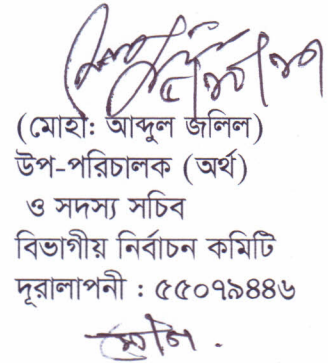 (মোহা: আব্দুল জলিল)
উপ-পরিচালক (অর্থ)
ও সদস্য সচিব
বিভাগীয় নির্বাচন কমিটি
দূরালাপনী : ৫৫০৭৯৪৪৬